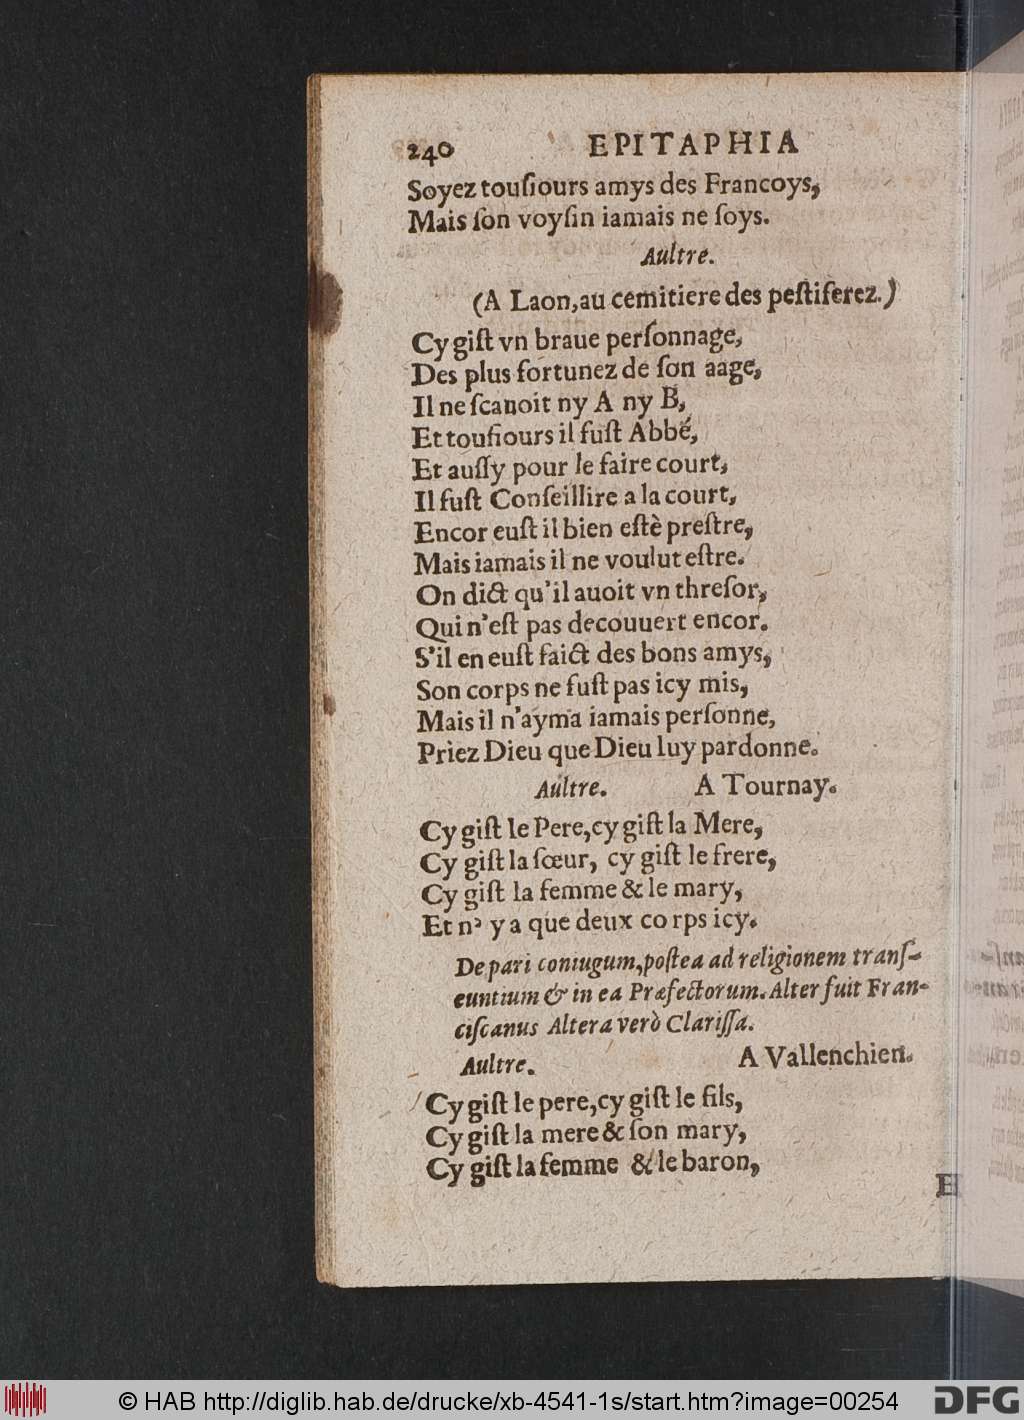 240 EPITAPHIA
Soyez touſiours amys des Francoys,
Mais ſon voyſin iamais ne ſoys.
Aultre.
(A Laon, au cemitiere des peſtiferez.)
Cy giſt vn braue perſonnage,
Des plus fortunez de ſon aage,
Il ne ſcauoit ny A ny B,
Et touſiours il fuſt Abbé,
Et auſſy pour le faire court,
Il fuſt Conſeillire a la court,
Encor euſt il bien eſtè preſtre,
Mais iamais il ne voulut eſtre.
On dict qu'il auoit vn threſor,
Qui n'eſt pas decouuert encor.
S'il en euſt faict des bons amys,
Son corps ne fuſt pas icy mis,
Mais il n'ayma iamais perſonne,
Priez Dieu que Dieu luy pardonne.
Aultre. A Tournay.
Cy giſt le Pere, cy giſt la Mere,
Cy giſt la ſœur, cy giſt le frere,
Cy giſt la femme & le mary,
Et n' y a que deux corps icy.
De pari coniugum, poſtea ad religionem tranſ-
euntium & in ea Præfectorum. Alter fuit Fran-
ciſcanus Altera verò Clariſſa.
Aultre. A Vallenchien.
Cy giſt le pere, cy giſt le fils,
Cy giſt la mere & ſon mary,
Cy giſt la femme & le baron,
© HAB http://diglib.hab.de/drucke/xb-4541-1s/start.htm?image=00254 DFG